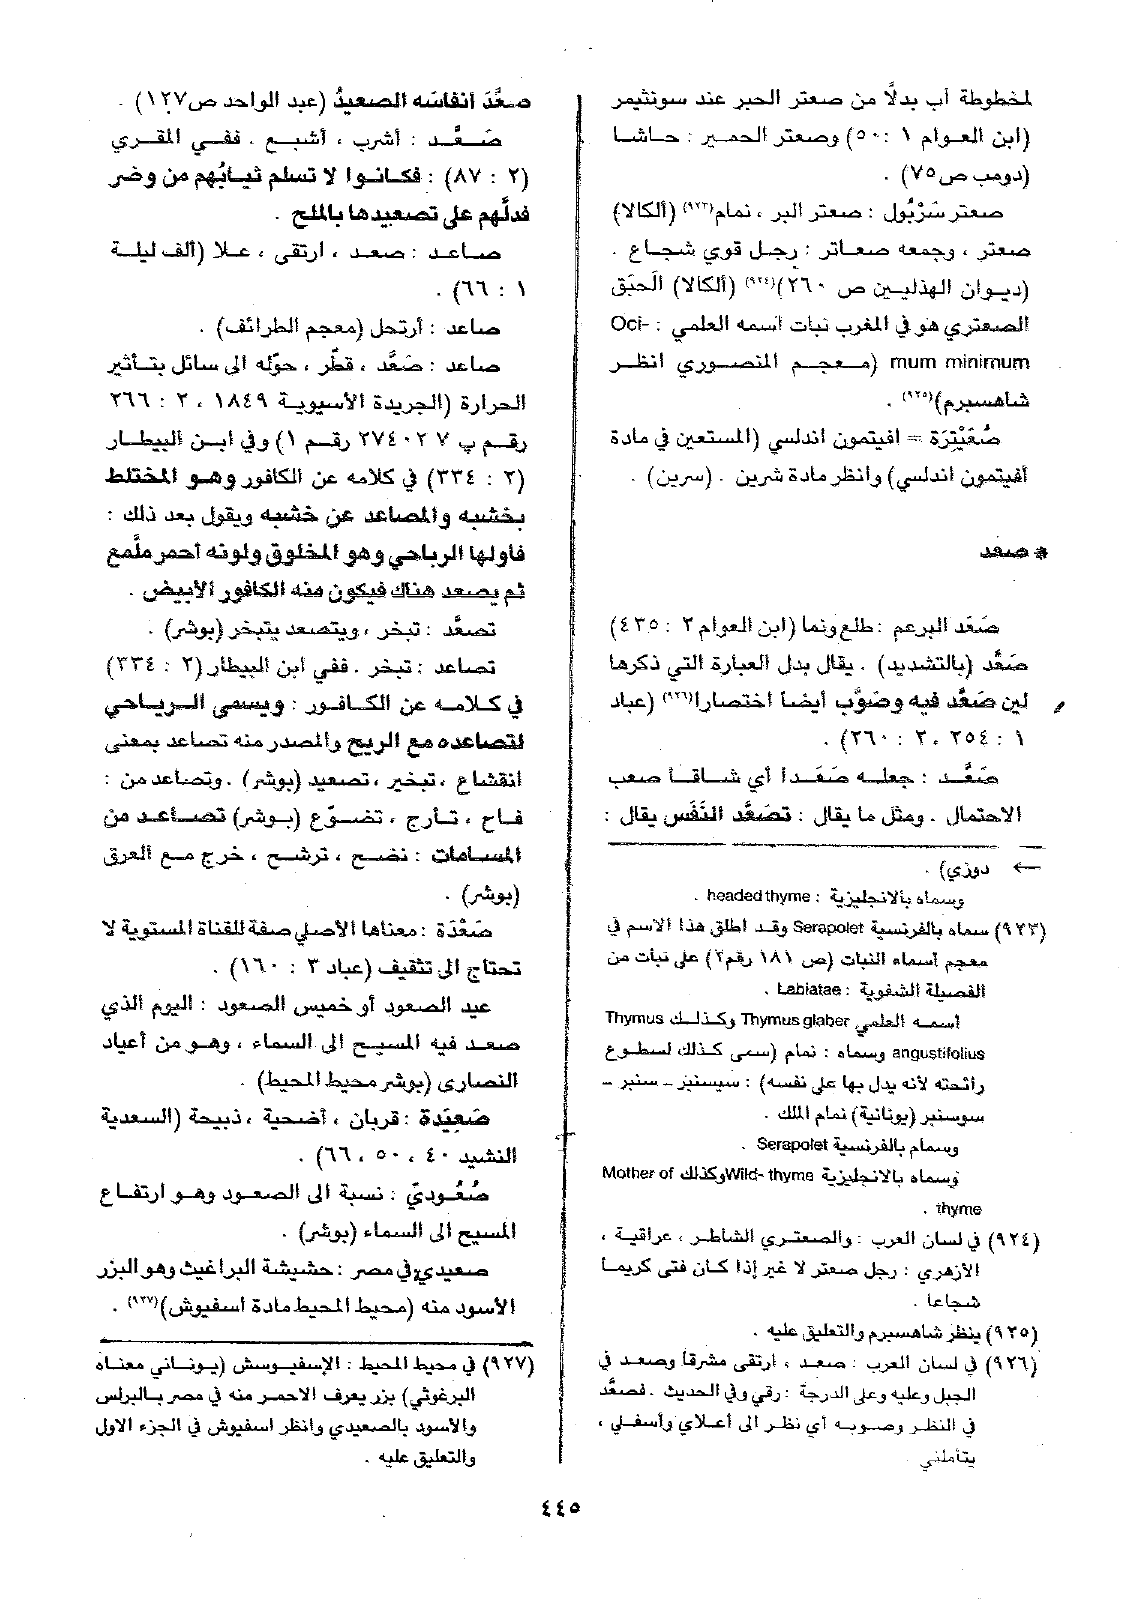 لمخطوطة أب بدلًا من صعتر الحبر عند سونثيمر
(ابن العوام ١ : ٥٠) وصعتر الحمير : حاشا
(دومب ص٧٥) .
صعتر سَرْبُول : صعتر البر ، نمام(٩٢٣) (ألكالا)
صعتر ، وجمعه صعاتر : رجل قوي شجاع .
(ديوان الهذليين ص ٢٦٠)(٩٢٤) (ألكالا) الَحبَق
الصعتري هو في المغرب نبات اسمه العلمي : Oci-
mum minimum (معجم المنصوري انظر
شاهسبرم)(٩٢٥) .
صُعَيْتِرَة = افيتمون اندلسي (المستعين في مادة
أفيتمون اندلسي) وانظر مادة شرين . (سرين) .
* صعد
صَعَد البرعم : طلع ونما (ابن العوام ٢ : ٤٣٥)
صَعَّد (بالتشديد) . يقال بدل العبارة التي ذكرها
لين صَعَّد فيه وصَوَّب أيضا اختصارا(٩٢٦) (عباد
١ : ٢٥٤ ، ٣ : ٢٦٠) .
صَعَّد : جعله صَعَدا أي شاقا صعب
الاحتمال . ومثل ما يقال : تصَعَّد النَفَس يقال :
← دوزي) .
وسماه بالانجليزية : headed thyme .
(٩٢٣) سماه بالفرنسية Serapolet وقد اطلق هذا الاسم في
معجم أسماء النبات (ص ١٨١ رقم٢) على نبات من
الفصيلة الشفوية : Labiatae .
أسمه العلمي Thymus glaber وكذلك Thymus
angustifolius وسماه : نمام (سمى كذلك لسطوع
رائحته لأنه يدل بها على نفسه) : سيسنبز – سنبر –
سوسنبر (يونانية) نمام الملك .
وسمام بالفرنسية Serapolet .
وسماه بالانجليزية Wild- thyme وكذلك Mother of
thyme .
(٩٢٤) في لسان العرب : والصعتري الشاطر ، عراقية ،
الأزهري : رجل صعتر لا غير إذا كان فتى كريما
شجاعا .
(٩٢٥) ينظر شاهسبرم والتعليق عليه .
(٩٢٦) في لسان العرب : صعد ، أرتقى مشرفا وصعد في
الجبل وعليه وعلى الدرجة : رقي وفي الحديث . فصعَّد
في النظر وصوبه أي نظر الى أعلاي وأسفلي ،
يتأملني
صعَّدَ أنفاسَه الصعيدُ (عبد الواحد ص١٢٧) .
صَعَّد : أشرب ، أشبع . ففي المقري
(٢ : ٨٧) : فكانوا لا تسلم ثيابُهم من وضر
فدلَّهم على تصعيدها بالملح .
صاعد : صعد ، ارتقى ، علا (ألف ليلة
١ : ٦٦) .
صاعد : أرتحل (معجم الطرائف) .
صاعد : صَعَّد ، قطّر ، حوّله الى سائل بتأثير
الحرارة (الجريدة الأسيوية ١٨٤٩ ، ٢ : ٢٦٦
رقم ب ٧ ٢٧٤٠٢ رقم ١) وفي ابن البيطار
(٢ : ٣٣٤) في كلامه عن الكافور وهو المختلط
بخشبه والمصاعد عن خشبه ويقول بعد ذلك :
فاولها الرباحي وهو المخلوق ولونه أحمر ملّمع
ثم يصعد هناك فيكون منه الكافور الأبيض .
تصعَّد : تبخر ، ويتصعد يتبخر (بوشر) .
تصاعد : تبخر . ففي ابن البيطار (٢ : ٣٣٤)
في كلامه عن الكافور : ويسمى الرياحي
لتصاعده مع الريح والمصدر منه تصاعد بمعنى
انقشاع ، تبخير ، تصعيد (بوشر) . وتصاعد من :
فاح ، تأرج ، تضوّع (بوشر) تصاعد من
المسامات : نضح ، ترشح ، خرج مع العرق
(بوشر) .
صَعْدَة : معناها الأصلي صفة للقناة المستوية لا
تحتاج الى تثقيف (عباد ٣ : ١٦٠) .
عيد الصعود أو خميس الصعود : اليوم الذي
صعد فيه المسيح الى السماء ، وهو من أعياد
النصارى (بوشر محيط المحيط) .
صَعِيَدة : قربان ، أضحية ، ذبيحة (السعدية
النشيد ٤٠ ، ٥٠ ، ٦٦) .
صُعُوديّ : نسبة الى الصعود وهو ارتفاع
المسيح الى السماء (بوشر) .
صعيدي في مصر : حشيشة البراغيث وهو البزر
الأسود منه (محيط المحيط مادة اسفيوش)(٩٢٧) .
(٩٢٧) في محيط المحيط : الإسفيوسش (يوناني معناه
البرغوثي) بزر يعرف الاحمر منه في مصر بالبرلس
والأسود بالصعيدي وانظر اسفيوش في الجزء الاول
والتعليق عليه .
٤٤٥